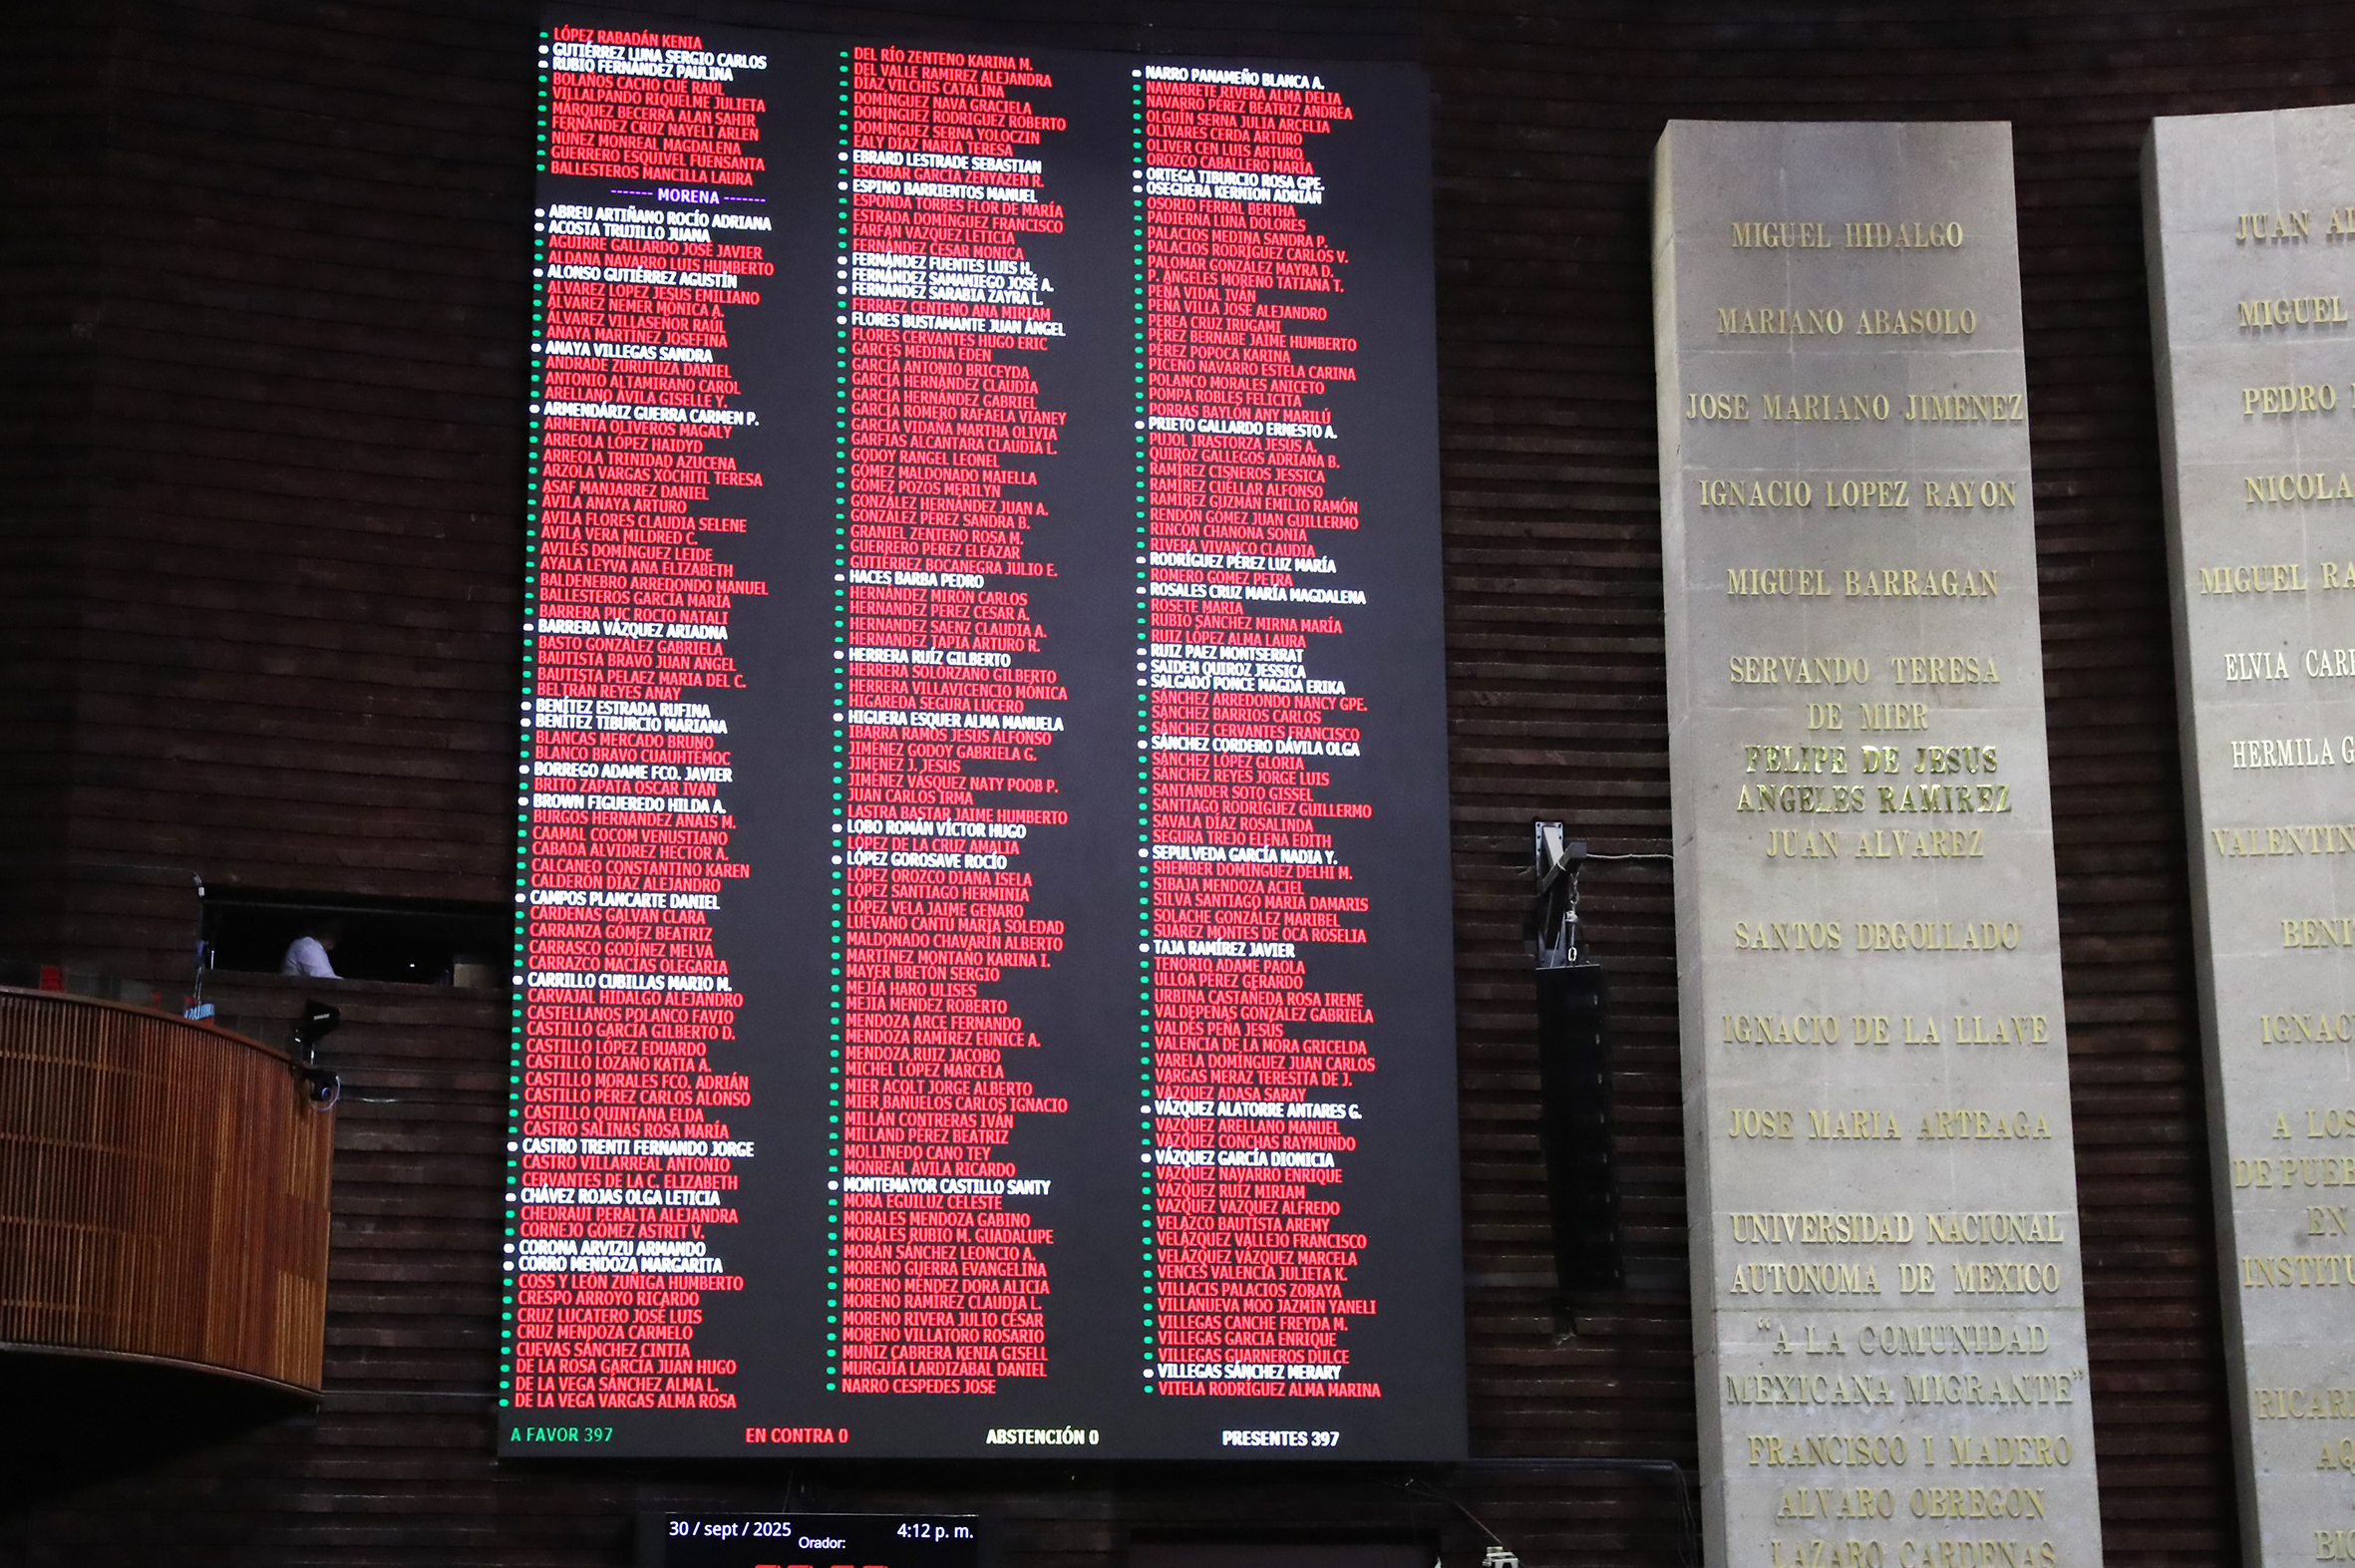 LÓPEZ RABADÁN KENIA
GUTIÉRREZ LUNA SERGIO CARLOS
RUBIO FERNÁNDEZ PAULINA
BOLAÑOS CACHO CUÉ RAÚL
VILLALPANDO RIQUELME JULIETA
MÁRQUEZ BECERRA ALAN SAHIR
FERNÁNDEZ CRUZ NAYELI ARLEN
NÚÑEZ MONREAL MAGDALENA
GUERRERO ESQUIVEL FUENSANTA
BALLESTEROS MANCILLA LAURA
------- MORENA -------
ABREU ARTIÑANO ROCÍO ADRIANA
ACOSTA TRUJILLO JUANA
AGUIRRE GALLARDO JOSÉ JAVIER
ALDANA NAVARRO LUIS HUMBERTO
ALONSO GUTIÉRREZ AGUSTÍN
ÁLVAREZ LÓPEZ JESÚS EMILIANO
ÁLVAREZ NEMER MÓNICA A.
ÁLVAREZ VILLASEÑOR RAÚL
ANAYA MARTÍNEZ JOSEFINA
ANAYA VILLEGAS SANDRA
ANDRADE ZURUTUZA DANIEL
ANTONIO ALTAMIRANO CAROL
ARELLANO ÁVILA GISELLE Y.
ARMENDÁRIZ GUERRA CARMEN P.
ARMENTA OLIVEROS MAGALY
ARREOLA LÓPEZ HAIDYD
ARREOLA TRINIDAD AZUCENA
ARZOLA VARGAS XÓCHITL TERESA
ASAF MANJARREZ DANIEL
ÁVILA ANAYA ARTURO
ÁVILA FLORES CLAUDIA SELENE
ÁVILA VERA MILDRED C.
AVILÉS DOMÍNGUEZ LEIDE
AYALA LEYVA ANA ELIZABETH
BALDENEBRO ARREDONDO MANUEL
BALLESTEROS GARCÍA MARÍA
BARRERA PUC ROCÍO NATALI
BARRERA VÁZQUEZ ARIADNA
BASTO GONZÁLEZ GABRIELA
BAUTISTA BRAVO JUAN ÁNGEL
BAUTISTA PELÁEZ MARÍA DEL C.
BELTRÁN REYES ANAY
BENÍTEZ ESTRADA RUFINA
BENÍTEZ TIBURCIO MARIANA
BLANCAS MERCADO BRUNO
BLANCO BRAVO CUAUHTÉMOC
BORREGO ADAME FCO. JAVIER
BRITO ZAPATA ÓSCAR IVÁN
BROWN FIGUEREDO HILDA A.
BURGOS HERNÁNDEZ ANAIS M.
CAAMAL COCOM VENUSTIANO
CABADA ALVIDREZ HÉCTOR A.
CALCÁNEO CONSTANTINO KAREN
CALDERÓN DÍAZ ALEJANDRO
CAMPOS PLANCARTE DANIEL
CÁRDENAS GALVÁN CLARA
CARRANZA GÓMEZ BEATRIZ
CARRASCO GODÍNEZ MELVA
CARRAZCO MACÍAS OLEGARIA
CARRILLO CUBILLAS MARIO M.
CARVAJAL HIDALGO ALEJANDRO
CASTELLANOS POLANCO FAVIO
CASTILLO GARCÍA GILBERTO D.
CASTILLO LÓPEZ EDUARDO
CASTILLO LOZANO KATIA A.
CASTILLO MORALES FCO. ADRIÁN
CASTILLO PÉREZ CARLOS ALONSO
CASTILLO QUINTANA ELDA
CASTRO SALINAS ROSA MARÍA
CASTRO TRENTI FERNANDO JORGE
CASTRO VILLARREAL ANTONIO
CERVANTES DE LA C. ELIZABETH
CHÁVEZ ROJAS OLGA LETICIA
CHEDRAUI PERALTA ALEJANDRA
CORNEJO GÓMEZ ASTRIT V.
CORONA ARVIZU ARMANDO
CORRO MENDOZA MARGARITA
COSS Y LEÓN ZÚÑIGA HUMBERTO
CRESPO ARROYO RICARDO
CRUZ LUCATERO JOSÉ LUIS
CRUZ MENDOZA CARMELO
CUEVAS SÁNCHEZ CINTIA
DE LA ROSA GARCÍA JUAN HUGO
DE LA VEGA SÁNCHEZ ALMA L.
DE LA VEGA VARGAS ALMA ROSA
DEL RÍO ZENTENO KARINA M.
DEL VALLE RAMÍREZ ALEJANDRA
DÍAZ VILCHIS CATALINA
DOMÍNGUEZ NAVA GRACIELA
DOMÍNGUEZ RODRÍGUEZ ROBERTO
DOMÍNGUEZ SERNA YOLOCZIN
EALY DÍAZ MARÍA TERESA
EBRARD LESTRADE SEBASTIÁN
ESCOBAR GARCÍA ZENYAZEN R.
ESPINO BARRIENTOS MANUEL
ESPONDA TORRES FLOR DE MARÍA
ESTRADA DOMÍNGUEZ FRANCISCO
FARFÁN VÁZQUEZ LETICIA
FERNÁNDEZ CÉSAR MÓNICA
FERNÁNDEZ FUENTES LUIS H.
FERNÁNDEZ SAMANIEGO JOSÉ A.
FERNÁNDEZ SARABIA ZAYRA L.
FERRÁEZ CENTENO ANA MIRIAM
FLORES BUSTAMANTE JUAN ÁNGEL
FLORES CERVANTES HUGO ERIC
GARCÉS MEDINA EDEN
GARCÍA ANTONIO BRICEYDA
GARCÍA HERNÁNDEZ CLAUDIA
GARCÍA HERNÁNDEZ GABRIEL
GARCÍA ROMERO RAFAELA VIANEY
GARCÍA VIDAÑA MARTHA OLIVIA
GARFIAS ALCÁNTARA CLAUDIA L.
GODOY RANGEL LEONEL
GÓMEZ MALDONADO MAIELLA
GÓMEZ POZOS MERILYN
GONZÁLEZ HERNÁNDEZ JUAN A.
GONZÁLEZ PÉREZ SANDRA B.
GRANIEL ZENTENO ROSA M.
GUERRERO PÉREZ ELEAZAR
GUTIÉRREZ BOCANEGRA JULIO E.
HACES BARBA PEDRO
HERNÁNDEZ MIRÓN CARLOS
HERNÁNDEZ PÉREZ CÉSAR A.
HERNÁNDEZ SÁENZ CLAUDIA A.
HERNÁNDEZ TAPIA ARTURO R.
HERRERA RUÍZ GILBERTO
HERRERA SOLÓRZANO GILBERTO
HERRERA VILLAVICENCIO MÓNICA
HIGAREDA SEGURA LUCERO
HIGUERA ESQUER ALMA MANUELA
IBARRA RAMOS JESÚS ALFONSO
JIMÉNEZ GODOY GABRIELA G.
JIMÉNEZ J. JESÚS
JIMÉNEZ VÁSQUEZ NATY POOB P.
JUAN CARLOS IRMA
LASTRA BASTAR JAIME HUMBERTO
LOBO ROMÁN VÍCTOR HUGO
LÓPEZ DE LA CRUZ AMALIA
LÓPEZ GOROSAVE ROCÍO
LÓPEZ OROZCO DIANA ISELA
LÓPEZ SANTIAGO HERMINIA
LÓPEZ VELA JAIME GENARO
LUÉVANO CANTÚ MARÍA SOLEDAD
MALDONADO CHAVARÍN ALBERTO
MARTÍNEZ MONTAÑO KARINA I.
MAYER BRETÓN SERGIO
MEJÍA HARO ULISES
MEJÍA MÉNDEZ ROBERTO
MENDOZA ARCE FERNANDO
MENDOZA RAMÍREZ EUNICE A.
MENDOZA RUIZ JACOBO
MICHEL LÓPEZ MARCELA
MIER ACOLT JORGE ALBERTO
MIER BAÑUELOS CARLOS IGNACIO
MILLÁN CONTRERAS IVÁN
MILLAND PÉREZ BEATRIZ
MOLLINEDO CANO TEY
MONREAL ÁVILA RICARDO
MONTEMAYOR CASTILLO SANTY
MORA EGUILUZ CELESTE
MORALES MENDOZA GABINO
MORALES RUBIO M. GUADALUPE
MORÁN SÁNCHEZ LEONCIO A.
MORENO GUERRA EVANGELINA
MORENO MÉNDEZ DORA ALICIA
MORENO RAMÍREZ CLAUDIA L.
MORENO RIVERA JULIO CÉSAR
MORENO VILLATORO ROSARIO
MUÑIZ CABRERA KENIA GISELL
MURGUÍA LARDIZÁBAL DANIEL
NARRO CÉSPEDES JOSÉ
NARRO PANAMEÑO BLANCA A.
NAVARRETE RIVERA ALMA DELIA
NAVARRO PÉREZ BEATRIZ ANDREA
OLGUÍN SERNA JULIA ARCELIA
OLIVARES CERDA ARTURO
OLIVER CEN LUIS ARTURO
OROZCO CABALLERO MARÍA
ORTEGA TIBURCIO ROSA GPE.
OSEGUERA KERNION ADRIÁN
OSORIO FERRAL BERTHA
PADIERNA LUNA DOLORES
PALACIOS MEDINA SANDRA P.
PALACIOS RODRÍGUEZ CARLOS V.
PALOMAR GONZÁLEZ MAYRA D.
P. ÁNGELES MORENO TATIANA T.
PEÑA VIDAL IVÁN
PEÑA VILLA JOSÉ ALEJANDRO
PEREA CRUZ IRUGAMI
PÉREZ BERNABE JAIME HUMBERTO
PÉREZ POPOCA KARINA
PICENO NAVARRO ESTELA CARINA
POLANCO MORALES ANICETO
POMPA ROBLES FELÍCITA
PORRAS BAYLÓN ANY MARILÚ
PRIETO GALLARDO ERNESTO A.
PUJOL IRASTORZA JESÚS A.
QUIROZ GALLEGOS ADRIANA B.
RAMÍREZ CISNEROS JESSICA
RAMÍREZ CUÉLLAR ALFONSO
RAMÍREZ GUZMÁN EMILIO RAMÓN
RENDÓN GÓMEZ JUAN GUILLERMO
RINCÓN CHANONA SONIA
RIVERA VIVANCO CLAUDIA
RODRÍGUEZ PÉREZ LUZ MARÍA
ROMERO GÓMEZ PETRA
ROSALES CRUZ MARÍA MAGDALENA
ROSETE MARÍA
RUBIO SÁNCHEZ MIRNA MARÍA
RUIZ LÓPEZ ALMA LAURA
RUIZ PÁEZ MONTSERRAT
SAIDEN QUIROZ JESSICA
SALGADO PONCE MAGDA ERIKA
SÁNCHEZ ARREDONDO NANCY GPE.
SÁNCHEZ BARRIOS CARLOS
SÁNCHEZ CERVANTES FRANCISCO
SÁNCHEZ CORDERO DÁVILA OLGA
SÁNCHEZ LÓPEZ GLORIA
SÁNCHEZ REYES JORGE LUIS
SANTANDER SOTO GISSEL
SANTIAGO RODRÍGUEZ GUILLERMO
SAVALA DÍAZ ROSALINDA
SEGURA TREJO ELENA EDITH
SEPÚLVEDA GARCÍA NADIA Y.
SHEMBER DOMÍNGUEZ DELHI M.
SIBAJA MENDOZA ACIEL
SILVA SANTIAGO MARÍA DAMARIS
SOLACHE GONZÁLEZ MARIBEL
SUÁREZ MONTES DE OCA ROSELIA
TAJA RAMÍREZ JAVIER
TENORIO ADAME PAOLA
ULLOA PÉREZ GERARDO
URBINA CASTAÑEDA ROSA IRENE
VALDEPEÑAS GONZÁLEZ GABRIELA
VALDÉS PEÑA JESÚS
VALENCIA DE LA MORA GRICELDA
VARELA DOMÍNGUEZ JUAN CARLOS
VARGAS MERAZ TERESITA DE J.
VÁZQUEZ ADASA SARAY
VÁZQUEZ ALATORRE ANTARES G.
VÁZQUEZ ARELLANO MANUEL
VÁZQUEZ CONCHAS RAYMUNDO
VÁZQUEZ GARCÍA DIONICIA
VÁZQUEZ NAVARRO ENRIQUE
VÁZQUEZ RUÍZ MIRIAM
VÁZQUEZ VÁZQUEZ ALFREDO
VELAZCO BAUTISTA AREMY
VELÁZQUEZ VALLEJO FRANCISCO
VELÁZQUEZ VÁZQUEZ MARCELA
VENCES VALENCIA JULIETA K.
VILLACIS PALACIOS ZORAYA
VILLANUEVA MOO JAZMÍN YANELI
VILLEGAS CANCHÉ FREYDA M.
VILLEGAS GARCÍA ENRIQUE
VILLEGAS GUARNEROS DULCE
VILLEGAS SÁNCHEZ MERARY
VITELA RODRÍGUEZ ALMA MARINA
A FAVOR 397 EN CONTRA 0 ABSTENCIÓN 0 PRESENTES 397
30 / sept / 2025 4:12 p. m.
Orador:
MIGUEL HIDALGO
MARIANO ABASOLO
JOSE MARIANO JIMENEZ
IGNACIO LOPEZ RAYON
MIGUEL BARRAGAN
SERVANDO TERESA
DE MIER
FELIPE DE JESUS
ANGELES RAMIREZ
JUAN ALVAREZ
SANTOS DEGOLLADO
IGNACIO DE LA LLAVE
JOSE MARIA ARTEAGA
UNIVERSIDAD NACIONAL
AUTONOMA DE MEXICO
"A LA COMUNIDAD
MEXICANA MIGRANTE"
FRANCISCO I MADERO
ALVARO OBREGON
LAZARO CARDENAS
JUAN AL
MIGUEL
PEDRO
NICOLA
MIGUEL RA
ELVIA CARR
HERMILA G
VALENTIN
BENI
IGNAC
A LOS
DE PUEB
EN
INSTITU
RICAR